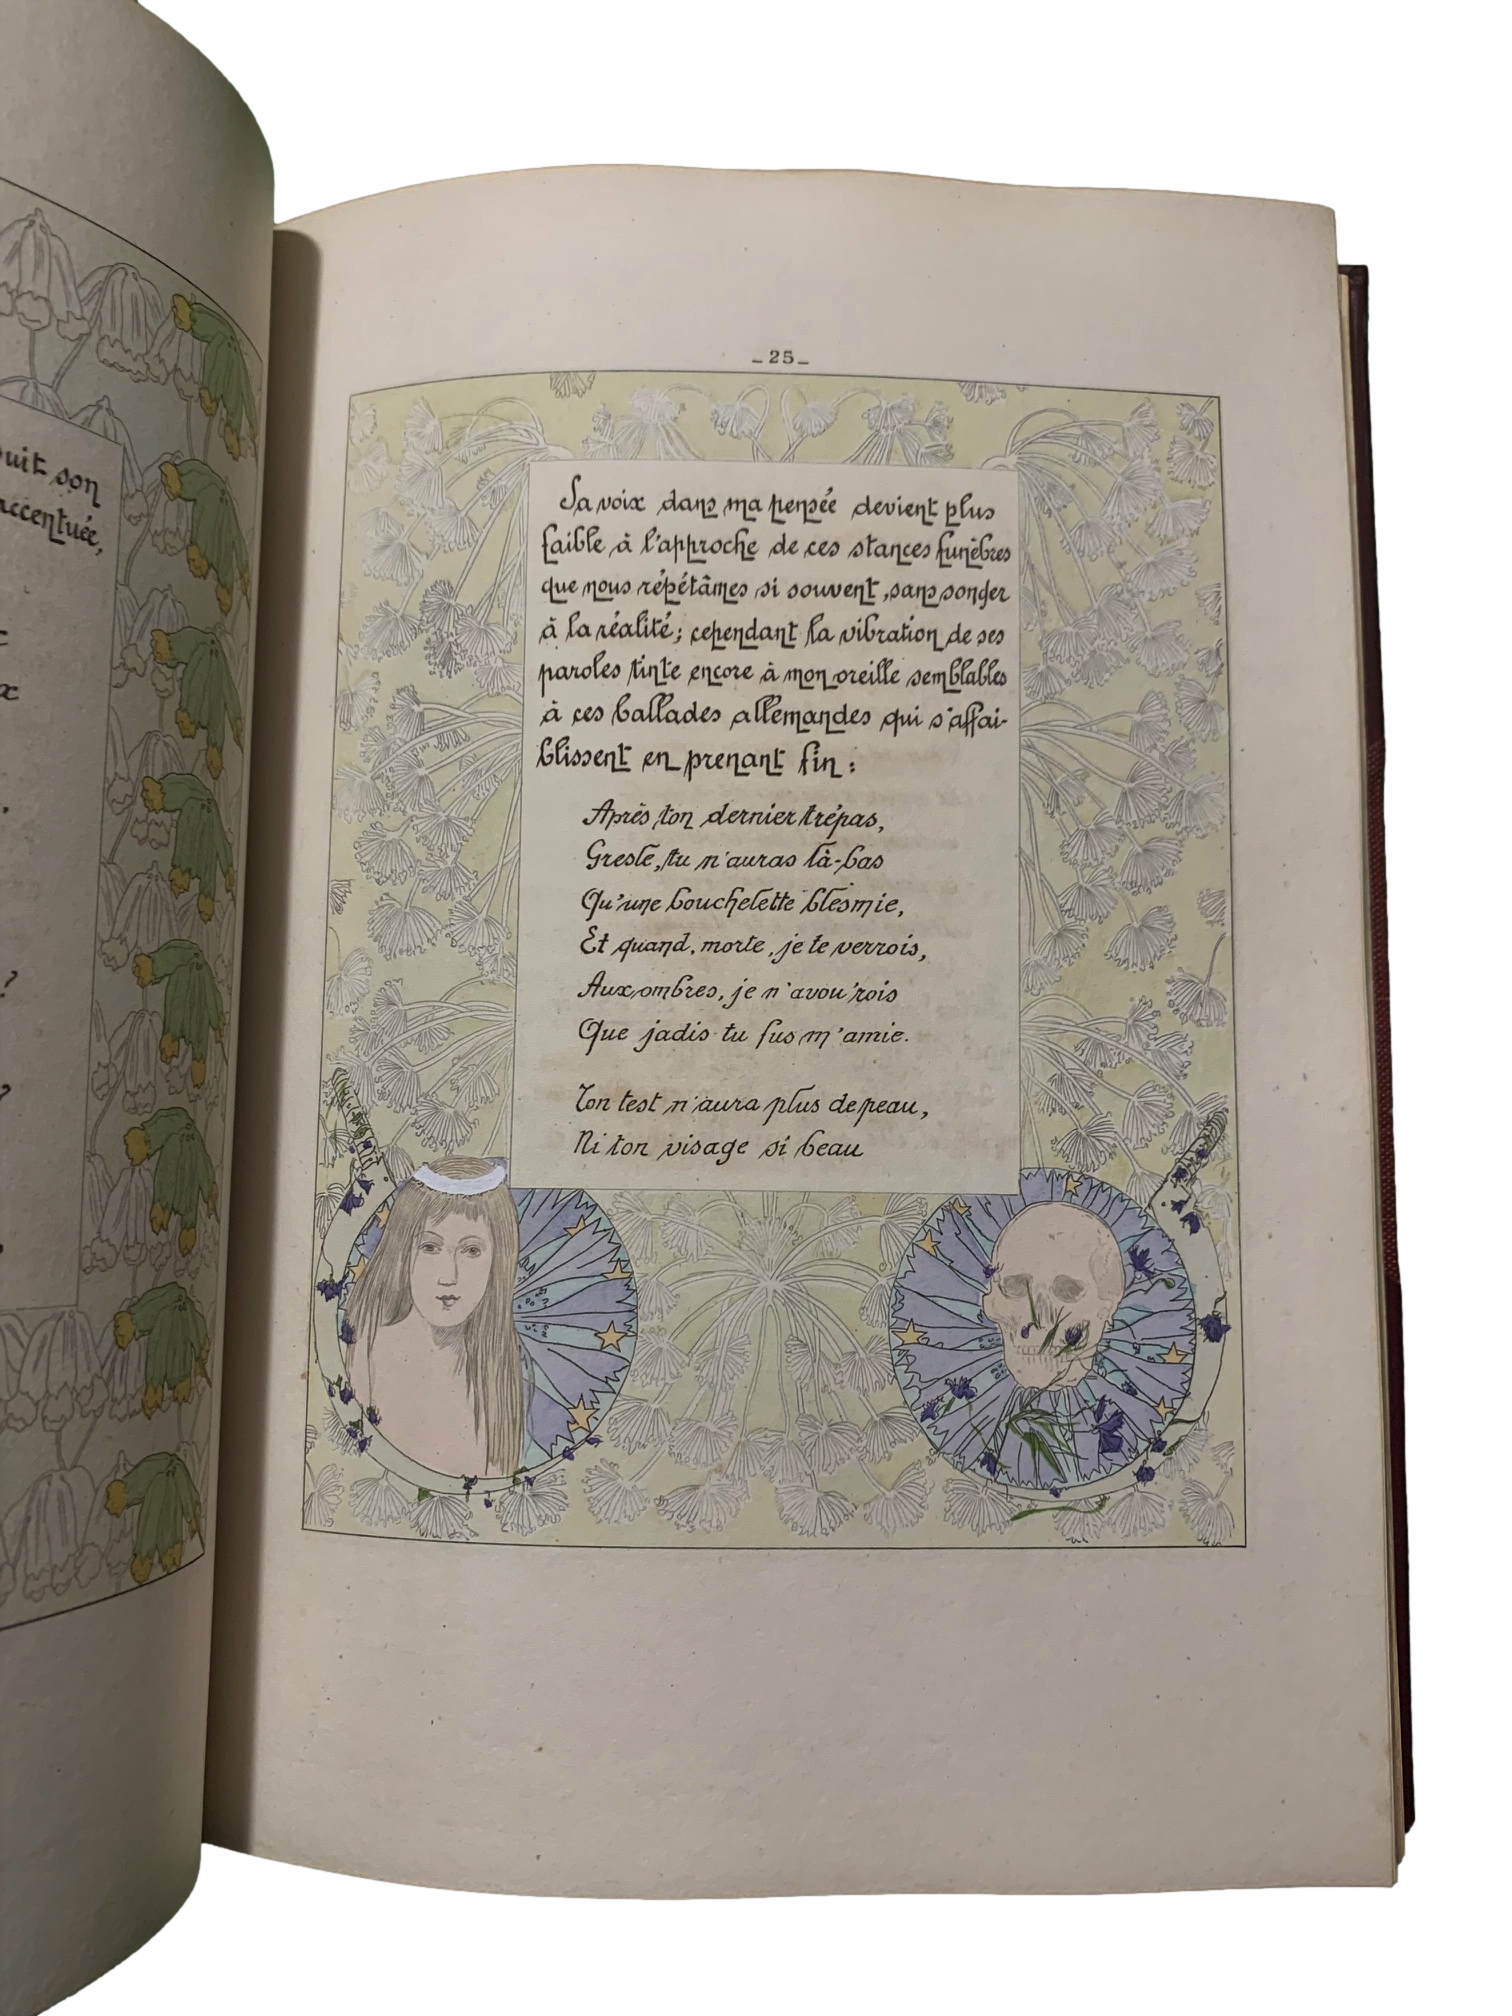 uit son
accentuée,
x
,
?
?
_25_
Sa voix dans ma pensée devient plus
faible à l'approche de ces stances funèbres
que nous répétâmes si souvent, sans songer
à la réalité; cependant la vibration de ses
paroles tinte encore à mon oreille semblables
à ces ballades allemandes qui s'affai-
blissent en prenant fin :
Après ton dernier trépas,
Gresle, tu n'auras là-bas
Qu'une bouchelette blesmie,
Et quand, morte, je te verrois,
Aux ombres, je n'avou'rois
Que jadis tu fus m'amie.
Ton test n'aura plus de peau,
Ni ton visage si beau